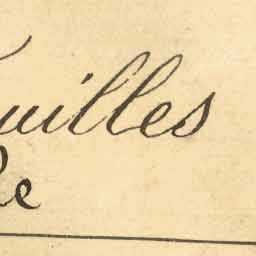 uilles
le